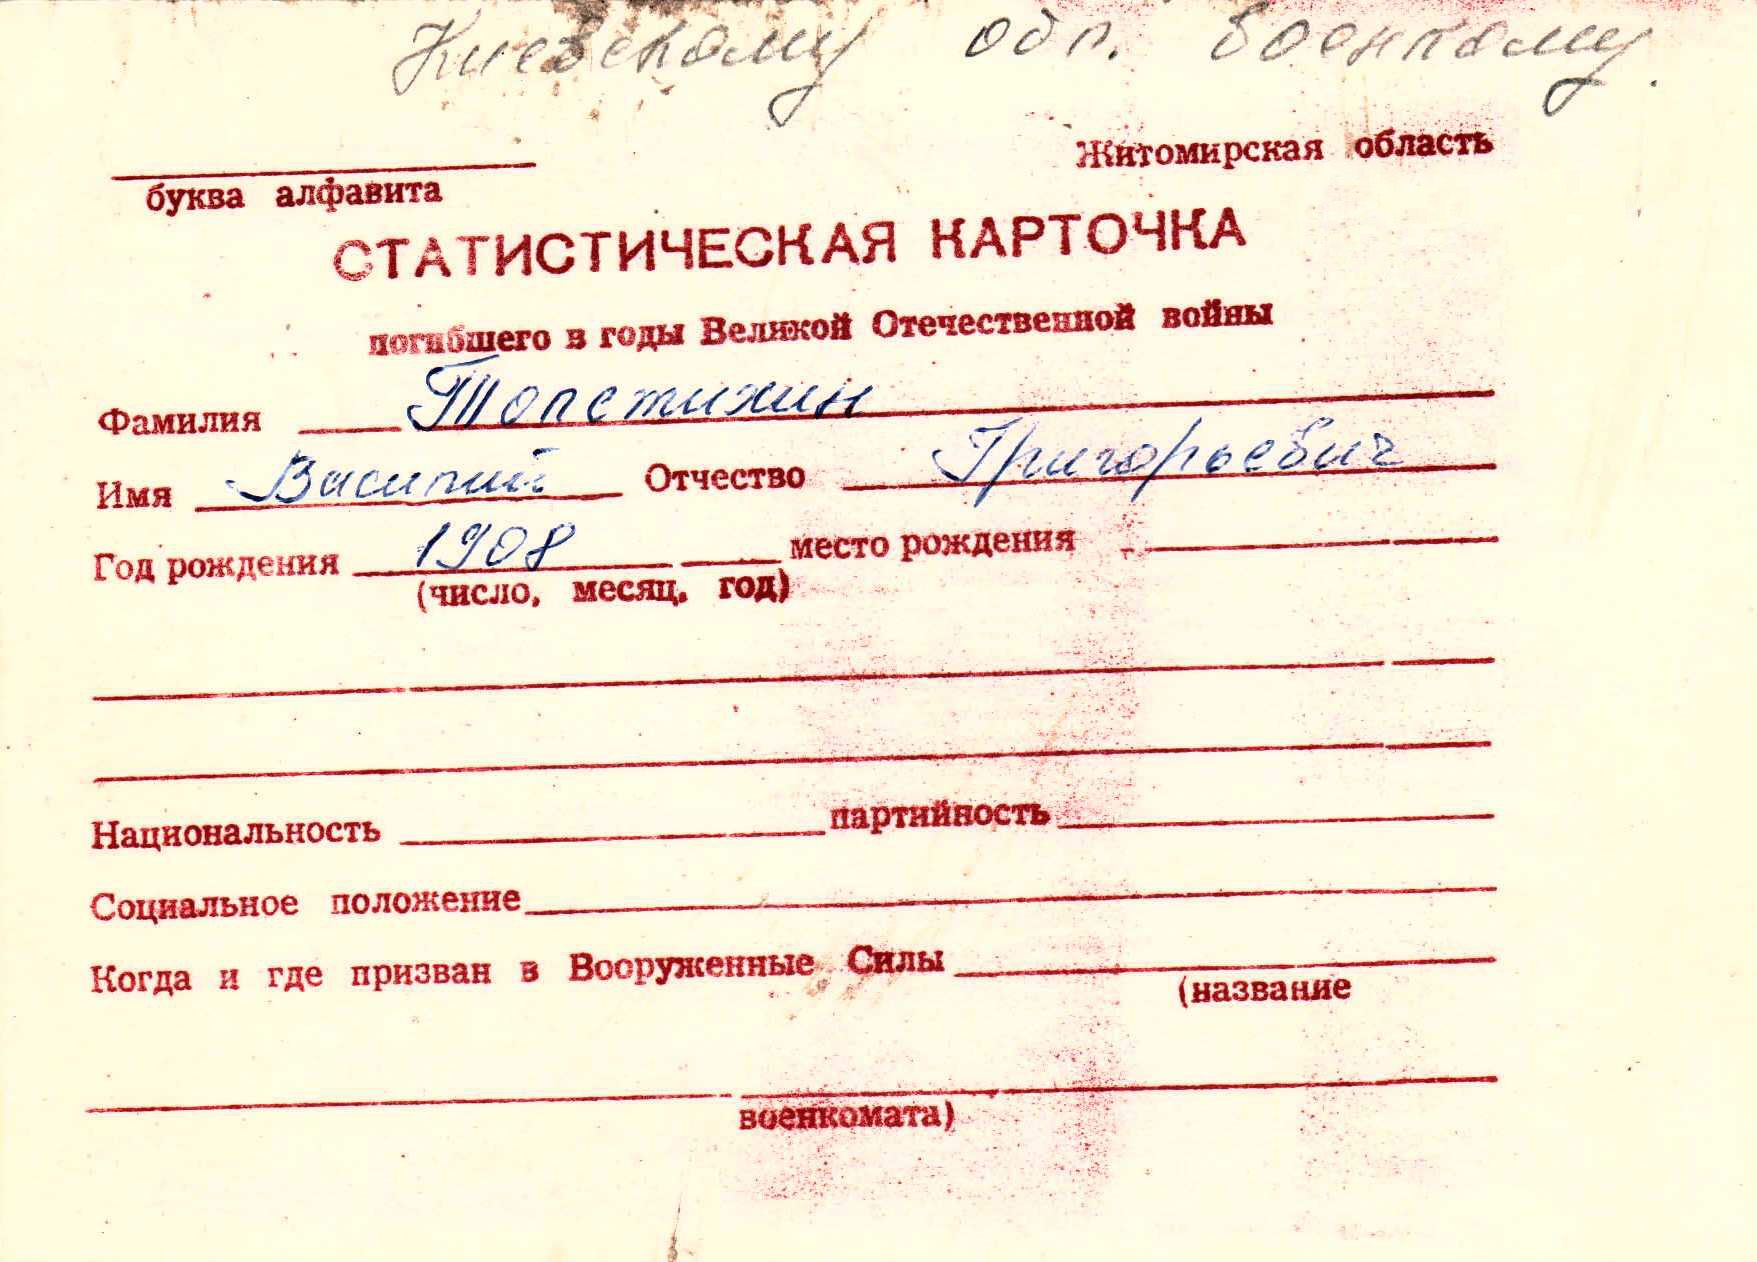 Киевскому обл. военкому.
Житомирская область
буква алфавита
СТАТИСТИЧЕСКАЯ КАРТОЧКА
погибшего в годы Великой Отечественной войны
Фамилия Толстихин
Имя Василий Отчество Григорьевич
Год рождения 1908 место рождения
(число, месяц, год)
Национальность партийность
Социальное положение
Когда и где призван в Вооруженные Силы
(название
военкомата)